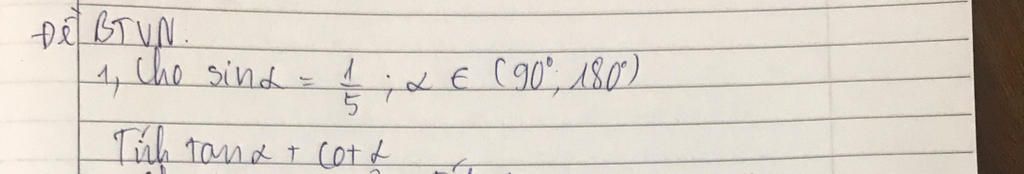 Đề BTVN.
1, Cho sinα = 1/5 ; α ∈ (90°; 180°)
Tính tanα + cot α